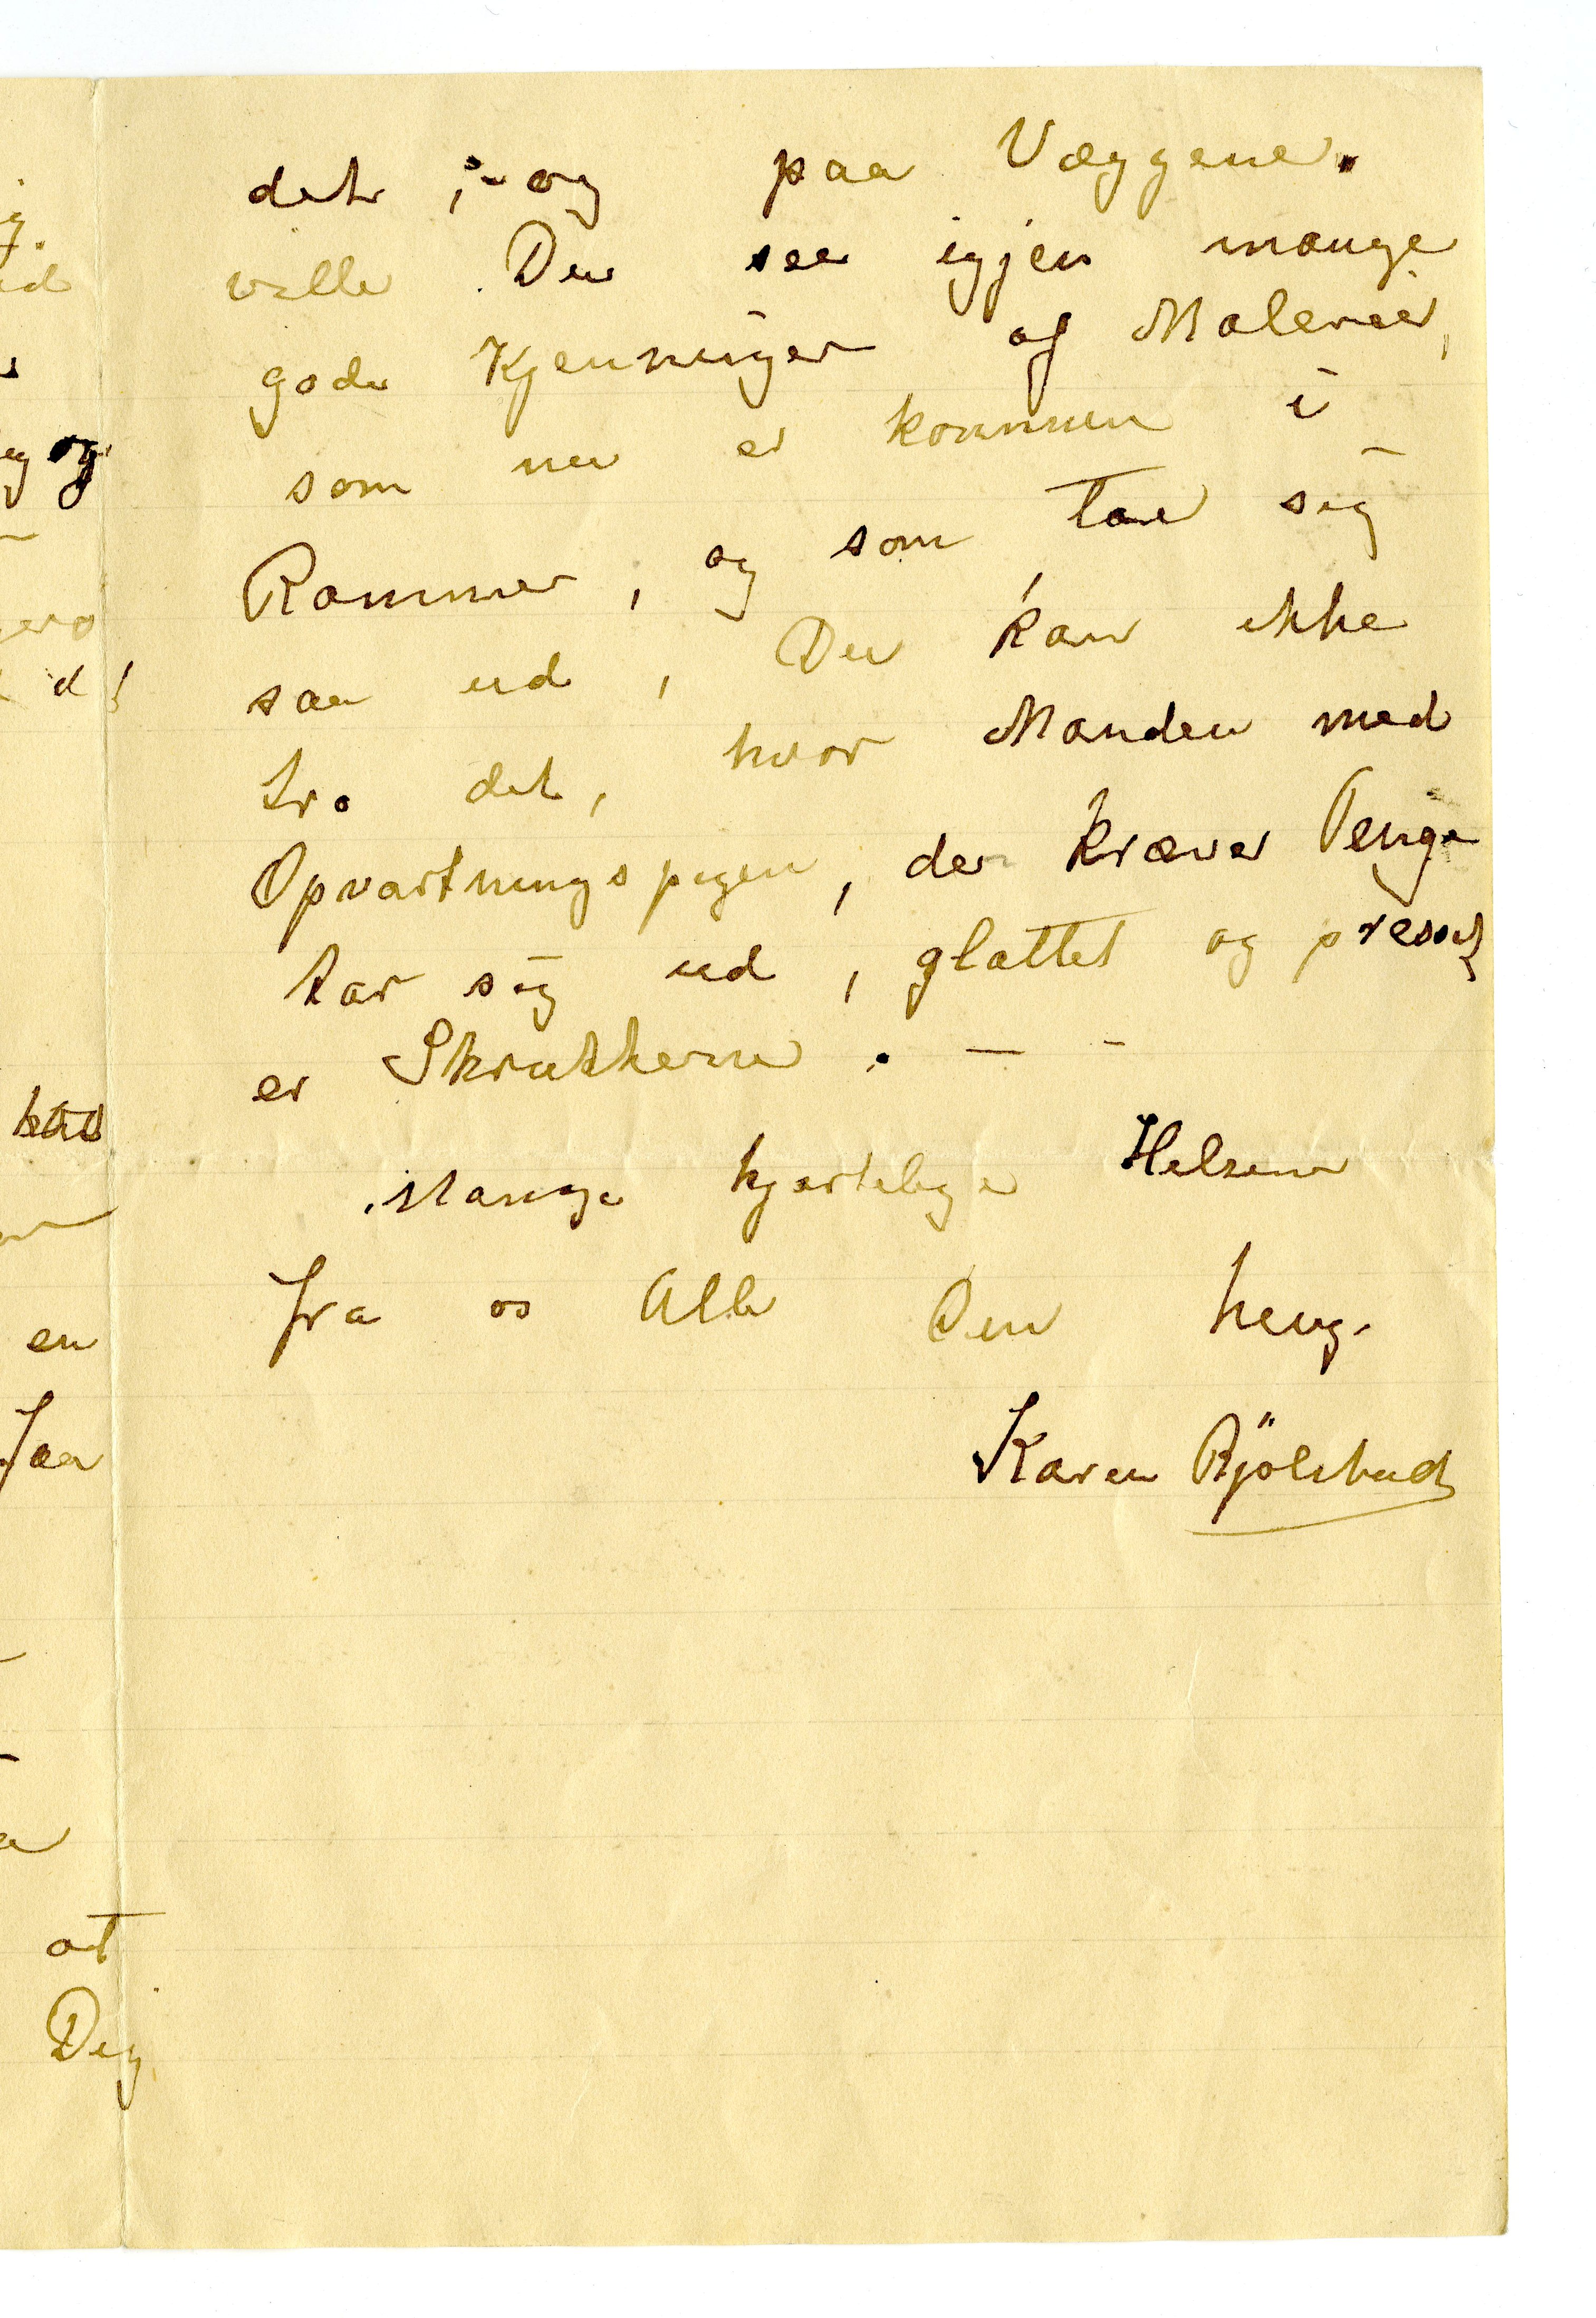 det ;- og paa Væggene.
ville Du see igjen mange
gode Kjenninger af Malerier,
som nu er kommen i
Rammer, og som tar sig
saa ud, Du kan ikke
tro det, hvor Manden med
Opvartningspigen, der kræver Penge
tar sig ud, glattet og presset
er Skrukkerne. – –
Mange hjertelige Helsener
fra os Alle Din heng.
Karen Bjölstad
og
en
Saa
at
Dig